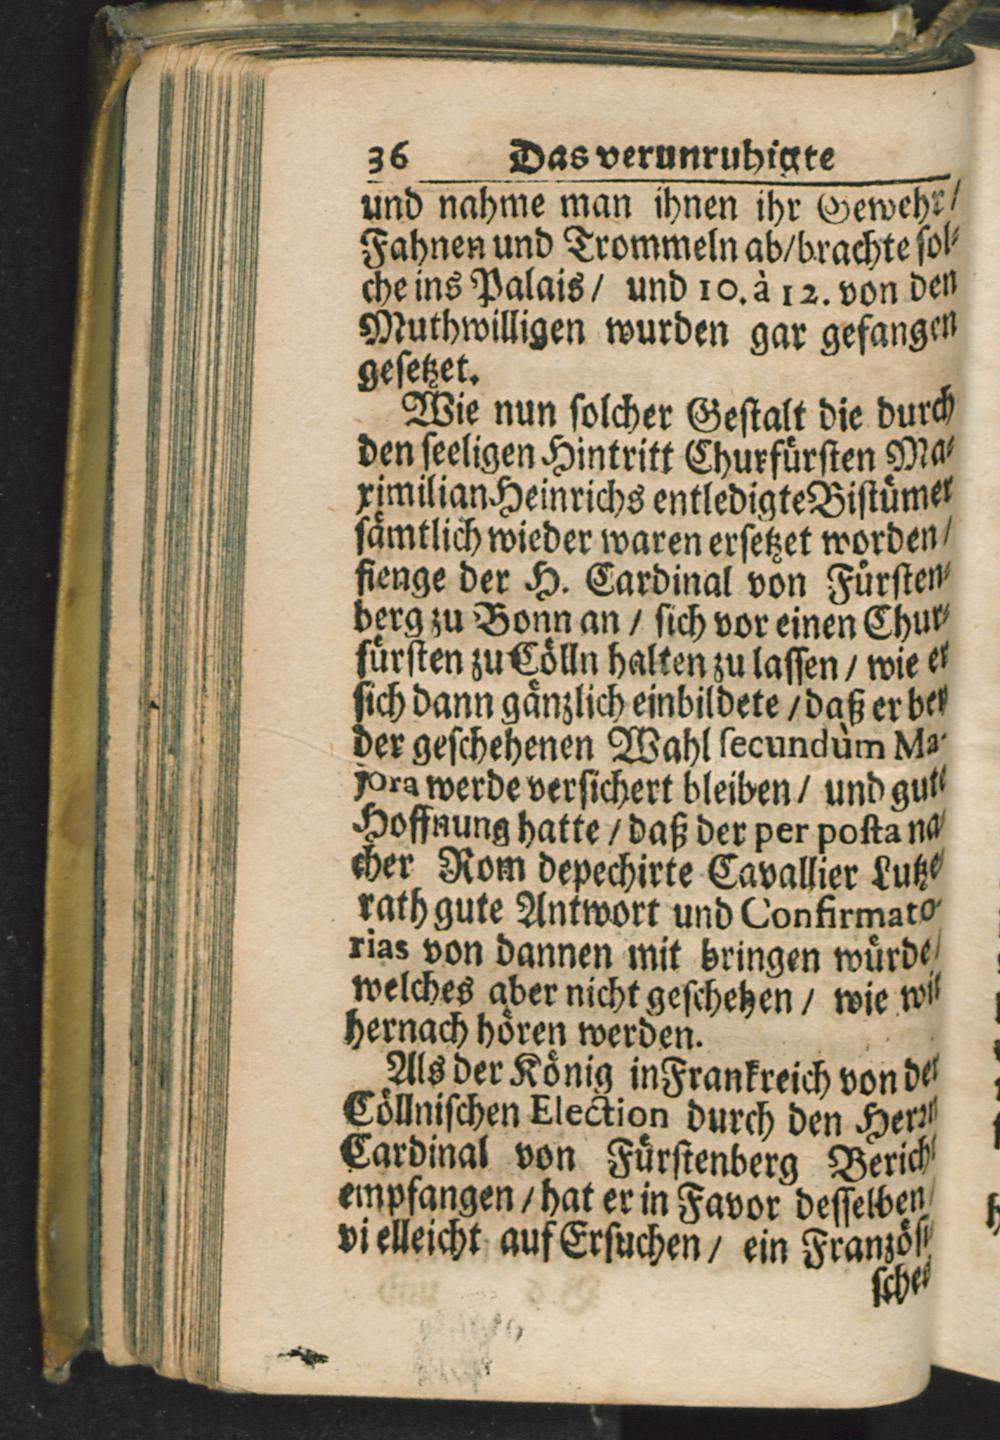 36 Das verunruhigte
und nahme man ihnen ihr Gewehr/
Fahnen und Trommeln ab/brachte sol-
che ins Palais/ und 10. à 12. von den
Muthwilligen wurden gar gefangen
gesetzet.
Wie nun solcher Gestalt die durch
den seeligen Hintritt Churfürsten Ma-
ximilian Heinrichs entledigte Bistümer
sämtlich wieder waren ersetzet worden/
fienge der H. Cardinal von Fürsten-
berg zu Bonn an / sich vor einen Chur-
fürsten zu Cölln halten zu lassen / wie er
sich dann gänzlich einbildete / daß er bey
der geschehenen Wahl secundùm Ma-
jora werde versichert bleiben / und gute
Hoffnung hatte / daß der per posta na-
cher Rom depechirte Cavallier Lutze-
rath gute Antwort und Confirmato-
rias von dannen mit bringen würde/
welches aber nicht geschehen / wie wir
hernach hören werden.
Als der König in Franckreich von der
Cöllnischen Election durch den Herrn
Cardinal von Fürstenberg Bericht
empfangen / hat er in Favor desselben/
vielleicht auf Ersuchen / ein Französi-
sches